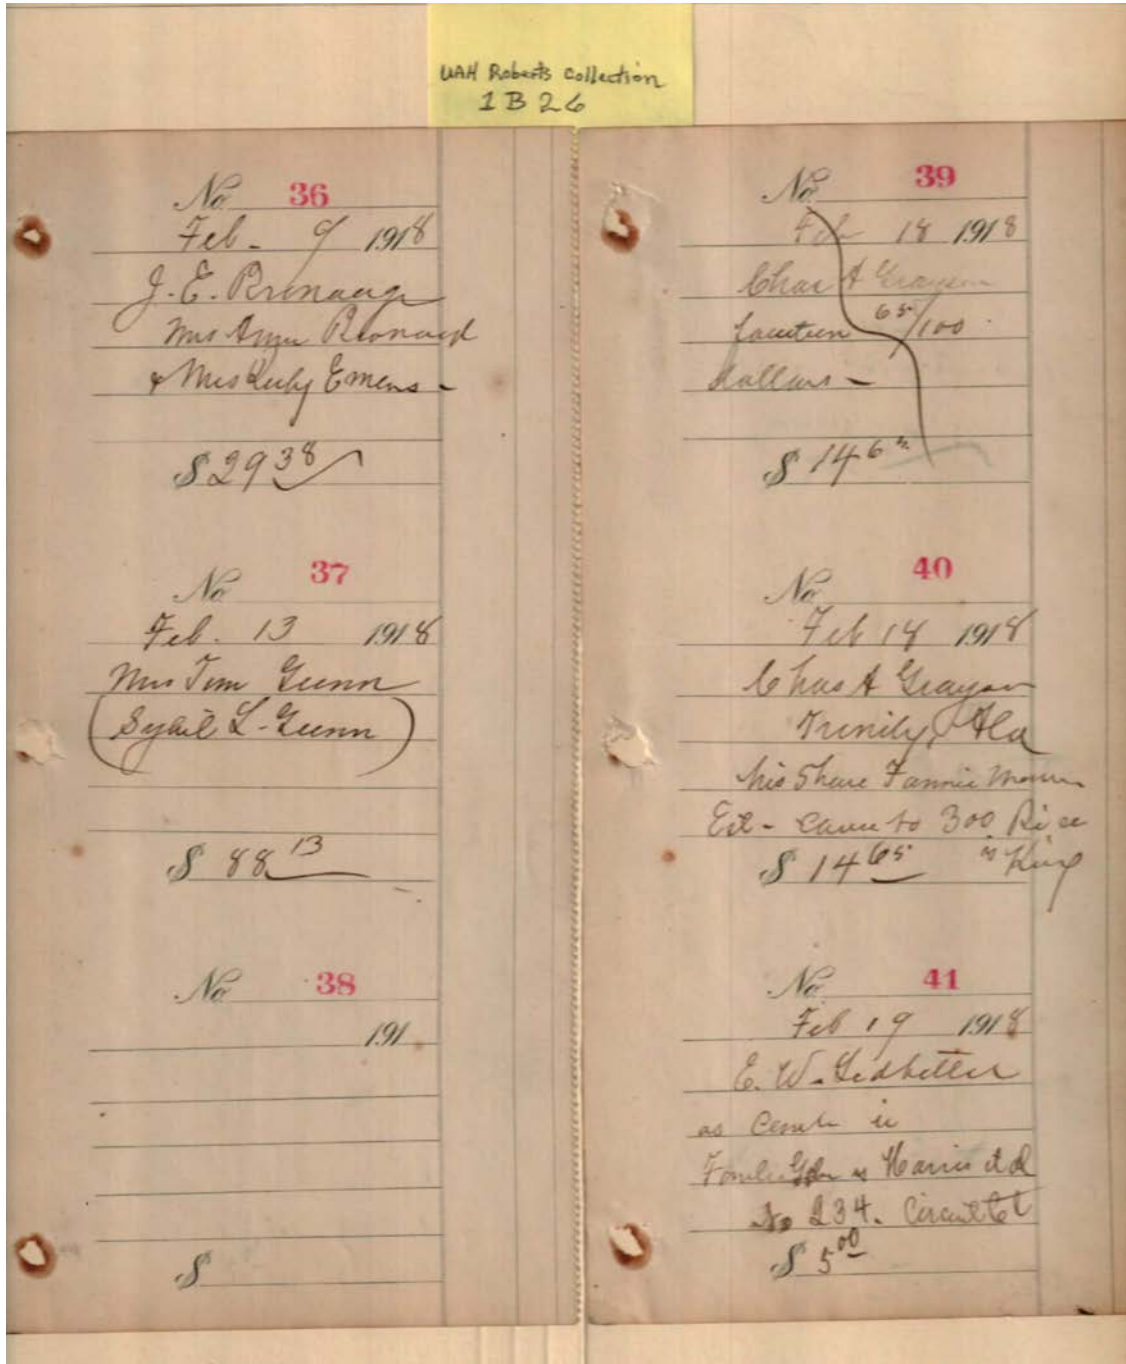 UAH Roberts Collection
1 B 26
No 36
Feb - 9 1918
J. E.
Mrs
& Mrs Ruby Emens -
$ 29 38
No 37
Feb. 13 1918
Mrs Tom Gunn
(Sybil L. Gunn)
$ 88 13
No 38
191
$
No 39
Feb 18 1918
Chas A Grayson
fourteen 65/100
dollars -
$ 14 65
No 40
Feb 18 1918
Chas A Grayson
Trinity, Ala
his Share Fannie
Est - cause to 300 Rice
vs King
$ 14 65
No 41
Feb 19 1918
E. W. Ledbetter
as in
vs Harris et al
No 234. Circuit Ct
$ 5 00